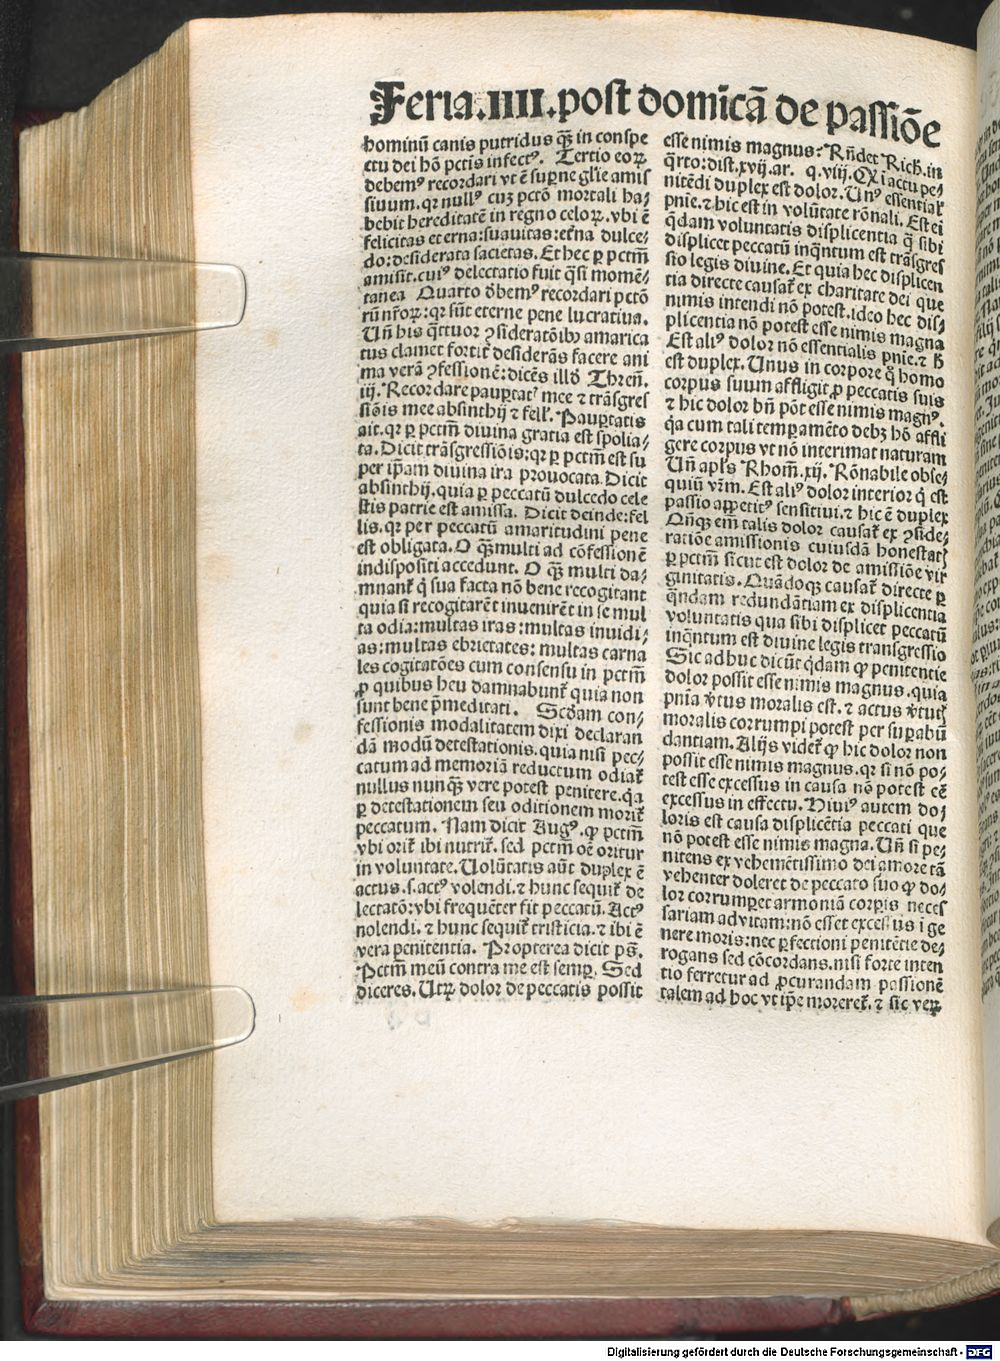 Feria.IIII.post domĩcã de passiõe
hominũ canis putridus q̃ꝫ in conspe
ctu dei hõ pctis infectꝰ. Tertio eoꝝ
debemꝰ recordari vt ẽ suꝑne glĩe amis
siuum. qr nullꝰ cuȝ pctõ mortali ha⸗
bebit hereditatẽ in regno celoꝝ. vbi ẽ
felicitas eterna: suauitas: etẽna dulce⸗
do: desiderata sacietas. Et hec ꝑ pctm̃
amisit. cuiꝰ delectatio fuit q̃si momẽ⸗
tanea Quarto ðbemꝰ recordari pctõ
rũ nr̃oꝝ: qr sũt eterne pene lucratiua.
Uñ his q̃ttuor ꝯsideratõibꝰ amarica
tus clamet fortit̃ desiderãs facere ani
ma verã ꝯfessionẽ: dicẽs illð Threñ.
iij. Recordare pauꝑtatꝭ mee ⁊ trãsgres
siõis mee absinthij ⁊ fellꝭ. Pauꝑtatis
ait. qr ꝑ pctm̃ diuina gratia est spolia⸗
ta. Dicit trãsgressiõis: qr ꝑ pctm̃ est su
per ip̃am diuina ira prouocata. Dicit
absinthij. quia ꝑ peccatũ dulcedo cele
stis patrie est amissa. Dicit deinde: fel
lis. qr per peccatũ amaritudini pene
est obligata. O q̃ꝫ multi ad cõfessionẽ
indispositi accedunt. O q̃ꝫ multi da⸗
mnant̃ q̇ sua facta nõ bene recogitant
quia si recogitarẽt inuenirẽt in se mul
ta odia: multas iras: multas inuidi⸗
as: multas ebrietates: multas carna
les cogitatões cum consensu in pctm̃
ꝓ quibus heu damnabunt̃ quia non
sunt bene p̃meditati. Scðam con⸗
fessionis modalitatem dixi declaran
dã modũ detestationis. quia nisi pec⸗
catum ad memoriã reductum odiat̃
nullus nunq̃ꝫ vere potest penitere. q̇a
ꝑ detestationem seu oditionem morit̃
peccatum. Nam dicit Augꝰ. ꝙ pctm̃
vbi orit̃ ibi nutrit̃. sed pctm̃ oẽ oritur
in voluntate. Uolũtatis aũt duplex ẽ
actus. s. actꝰ volendi. ⁊ hunc sequit̃ de
lectatõ: vbi frequẽter fit peccatũ. Actꝰ
nolendi. ⁊ hunc sequit̃ tristicia. ⁊ ibi ẽ
vera penitentia. Propterea dicit ps̃.
Pctm̃ meũ contra me est semꝑ. Sed
diceres. Utꝝ dolor de peccatis possit
esse nimis magnus? Rñdet Rich. in
q̃rto: dist. xvij. ar. q. viij. Q̃ ĩ actu pe⸗
nitẽdi duplex est dolor. Unꝰ essentialꝭ
pnĩe. ⁊ hic est in volũtate rõnali. Est ei
q̃dam voluntatis displicentia q̃ sibi
displicet peccatũ inq̃ntum est trãsgres
sio legis diuine. Et quia hec displicen
tia directe causat̃ ex charitate dei que
nimis intendi nõ potest. ideo hec dis⸗
plicentia nõ potest esse nimis magna
Est aliꝰ dolor nõ essentialis pnĩe. ⁊ ħ
est duplex. Unus in corpore q̊ homo
corpus suum affligit ꝓ peccatis suis
⁊ hic dolor bñ põt esse nimis magnꝰ.
q̇a cum tali temꝑamẽto debȝ hõ affli
gere corpus vt nõ interimat naturam
Uñ apl̃s Rhom̃. xij. Rõnabile obse⸗
quiũ vr̃m. Est aliꝰ dolor interior q̇ est
passio appetitꝰ sensitiui. ⁊ hic ẽ duplex
Qñqȝ em̃ talis dolor causat̃ ex ꝯside⸗
ratiõe amissionis cuiusdã honestatꝭ
ꝑ pctm̃ sicut est dolor de amissiõe vir
ginitatis. Quãdoqȝ causat̃ directe ꝑ
q̃ndam redundãtiam ex displicentia
voluntatis qua sibi displicet peccatũ
inq̃ntum est diuine legis transgressio
Sic adhuc dicũt q̇dam ꝙ penitentie
dolor possit esse nimis magnus. quia
pnĩa v̾tus moralis est. ⁊ actus v̾tutꝭ
moralis corrumpi potest per suꝑabũ
dantiam. Alijs videt̃ ꝙ hic dolor non
possit esse nimis magnus. qr si nõ po⸗
test esse excessus in causa nõ potest eẽ
excessus in effectu. Huiꝰ autem do⸗
loris est causa displicẽtia peccati que
nõ potest esse nimis magna. Uñ si pe⸗
nitens ex vehemẽtissimo dei amore tã
vehenter doleret de peccato suo ꝙ do⸗
lor corrumꝑet armoniã corꝑis neces
sariam ad vitam: nõ esset excessus ĩ ge
nere moris: nec ꝑfectioni penitẽtie de⸗
rogans sed cõcordans. nisi forte inten
tio ferretur ad ꝓcurandam passionẽ
talem ad hoc vt ip̃e moreret̃. ⁊ sic veꝝ
Digitalisierung gefördert durch die Deutsche Forschungsgemeinschaft - DFG